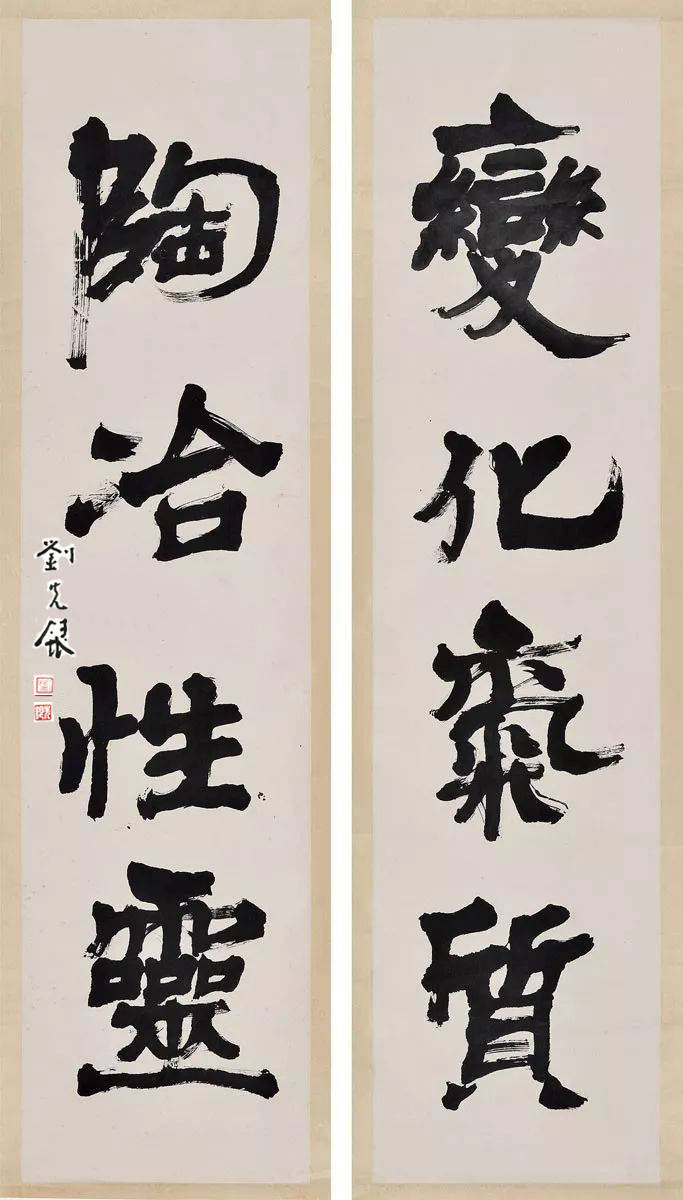 變化氣質
陶冶性靈
劉先銀